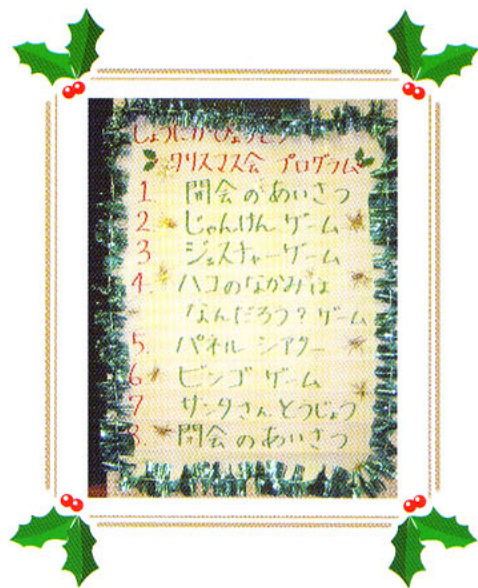 しょうにかびょうとう
クリスマス会 プログラム
1. 開会のあいさつ
2. じゃんけんゲーム
3 ジェスチャーゲーム
4. ハコのなかみは
なんだろう?ゲーム
5. パネルシアター
6. ビンゴゲーム
7 サンタさんとうじょう
8. 閉会のあいさつ